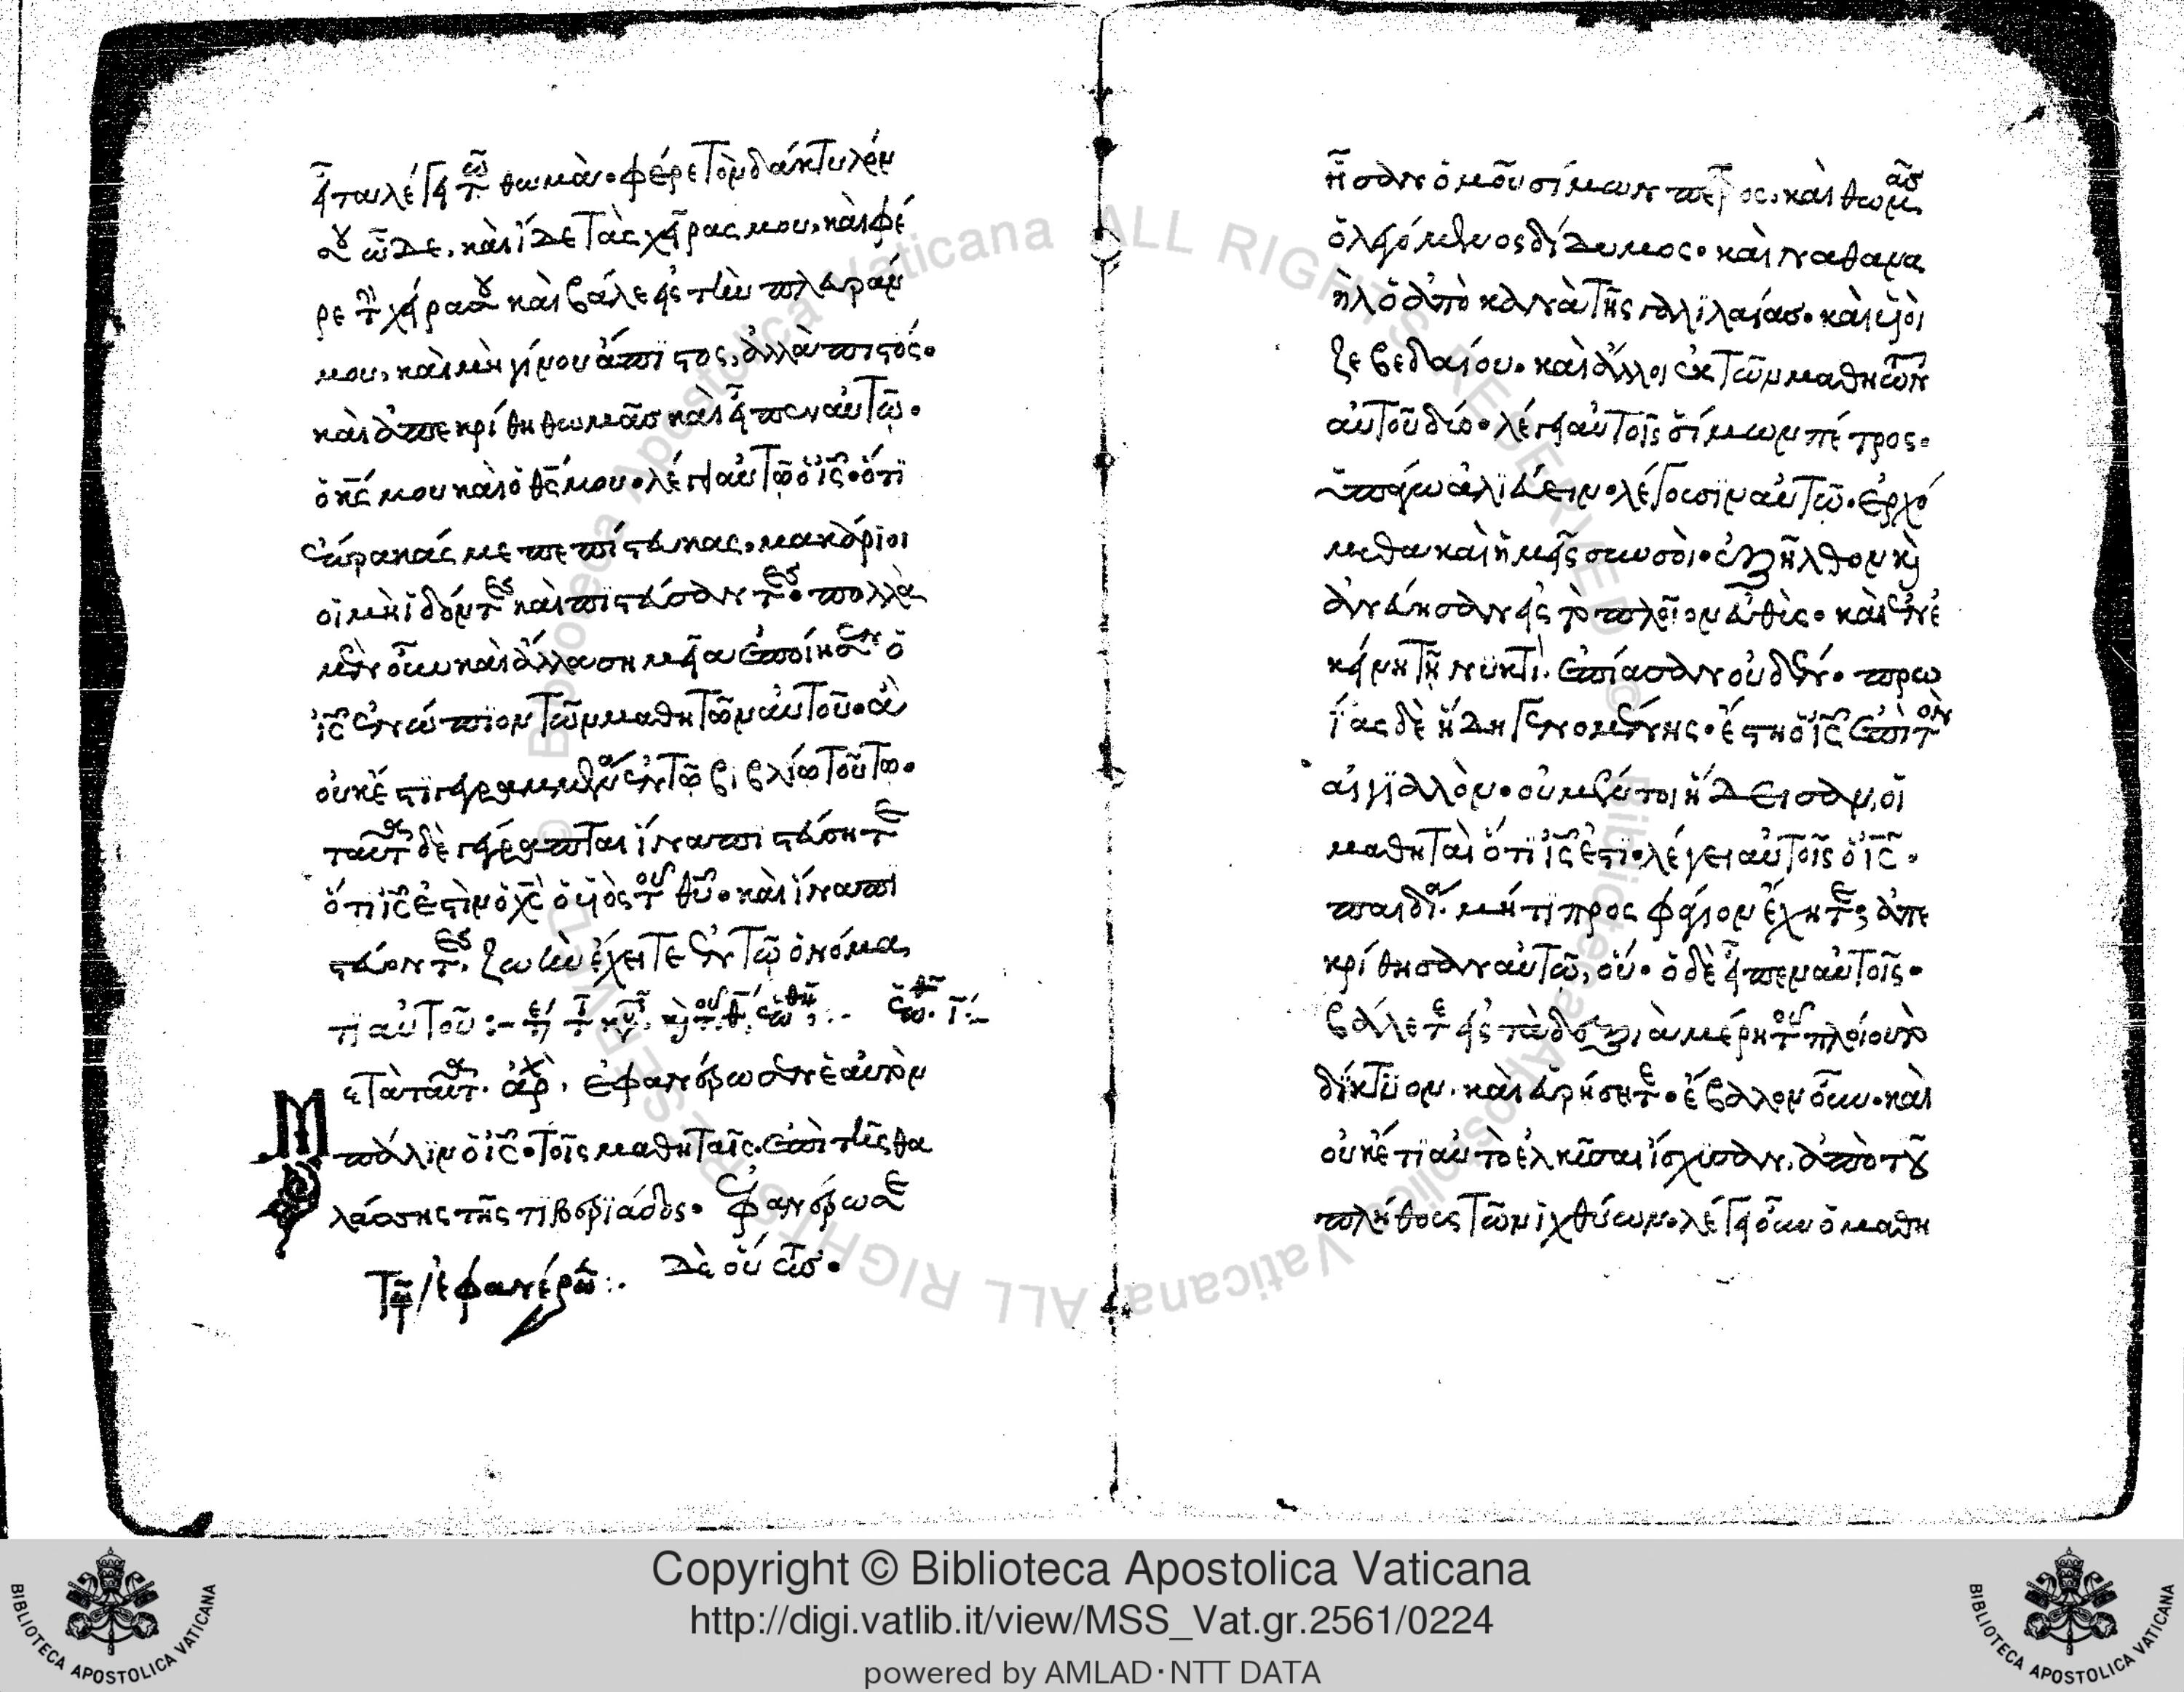 εἶτα λέγει τῶ θωμὰ· φέρε τὸν δάκτυλόν
σου ὧδε, καὶ ἴδε τὰς χεῖρας μου, καὶ φέ
ρε τὴν χείρα σου καὶ βάλε εἰς τὴν πλευράν
μου, καὶ μὴ γίνου ἄπιστος, ἀλλὰ πιστός·
καὶ ἀπεκρίθη θωμᾶσ καὶ εἶπεν αὐτῶ·
ὁ κ̅ς μου καὶ ὁ θ̅ς μου· λέγει αὐτῶ ὁ ι̅ς· ὅτι
ἑώρακάς με πεπίστευκας· μακάριοι
οἱ μὴ ἰδόντες καὶ πιστεύσαντες· πολλὰ
μὲν οὖν καὶ ἄλλα σημεῖα ἐποίησεν ὁ
ι̅ς ἐνώπιον τῶν μαθητῶν αὐτοῦ· ἃ
οὐκ ἔστι γεγραμμένα ἐν τῶ βιβλίω τούτω·
ταῦτα δὲ γέγραπται ἵνα πιστεύσητε
ὅτι ι̅ς ἐστὶν ὁ χ̅ς ὁ υἱὸς τοῦ θ̅υ· καὶ ἵνα πι
στεύοντες, ζωὴν ἔχειτε ἐν τῶ ὀνόμα
τι αὐτοῦ :-
Μετὰ ταῦτα. ἀρχ. ἐφανέρωσεν ἑαὐτὸν
πάλιν ὁ ι̅ς· τοῖς μαθηταῖς· ἐπὶ τῆς θα
λάσσης τῆς τιβεριάδος· ἐφανέρωσε
δὲ οὕτως·
ἦσαν ὁμοῦ σίμων πέτρος, καὶ θωμᾶσ
ὁ λεγόμενος δίδυμος· καὶ ναθανα
ὴλ ὁ ἀπὸ κανὰ τῆς γαλιλαίασ· καὶ υἱοὶ
ζεβεδαίου· καὶ ἄλλοι ἐκ τῶν μαθητῶν
αὐτοῦ δύο· λέγει αὐτοῖς σίμων πέτρος·
ὑπάγω ἁλιεύειν· λέγουσιν αὐτῶ· ἐρχό
μεθα καὶ ἡμεῖς σὺν σοὶ· ἐξῆλθον καὶ
ἀνέβησαν εἰς τὸ πλοῖον εὐθὺς· καὶ ἐν ἐ
κείνη τῆ νυκτὶ. ἐπίασαν οὐδέν· πρω
ίας δὲ ἤδη γενομένης· ἔστη ὁ ι̅ς ἐπὶ τὸν
αἰγιαλλὸν· οὐ μέντοι ἤδεισαν, οἱ
μαθηταὶ ὅτι ι̅ς ἐστι· λέγει αὐτοῖς ὁ ι̅ς·
παιδία. μή τι προς φάγιον ἔχητε; ἀπε
κρίθησαν αὐτῶ, οὐ· ὁ δὲ εἶπεν αὐτοῖς·
βάλετε εἰς τὰ δεξιὰ μέρη τοῦ πλοίου τὸ
δίκτυον. καὶ εὑρήσητε· ἔβαλον οὖν· καὶ
οὐκέτι αὐτὸ ἑλκῦσαι ἴσχυσαν, ἀπὸ τοῦ
πλήθους τῶν ἰχθύων· λέγει οὖν ὁ μαθη
Copyright © Biblioteca Apostolica Vaticana
http://digi.vatlib.it/view/MSS_Vat.gr.2561/0224
powered by AMLAD·NTT DATA
BIBLIOTECA APOSTOLICA VATICANA
BIBLIOTECA APOSTOLICA VATICANA